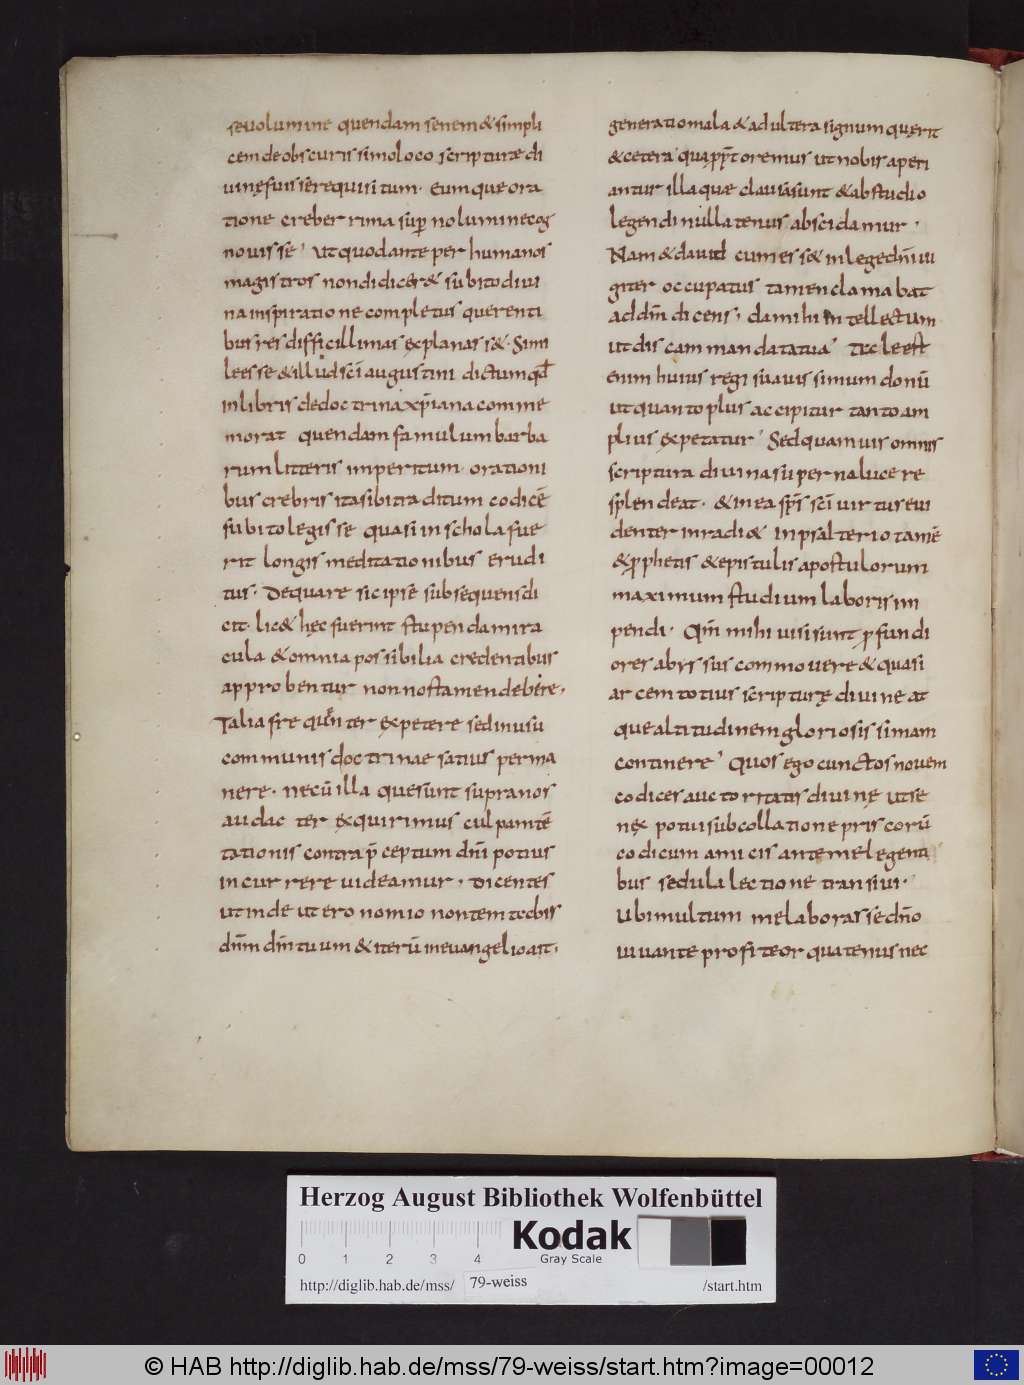 sevolumine quendam senem & simpli
cem de obscurissimo loco scripture di
uinę fuisse requisitum · Eumque ora
tione creberrima sup̄no lumine cog
nouisse ut quod ante per humanos
magistros non didicer& subito diui
na inspiratione completus querenti
bus res difficillimas explanass& · Simi
le esse & illud sc̄i augustini dictum qd̄
in libris de doctrina xp̄iana comme
morat quendam famulum barba
rum litteris imperitum · orationi
bus crebris ita sibi traditum codicē
subito legisse quasi in schola fue
rit longis meditationibus erudi
tus · De qua re sic ipse subsequens di
cit · lic& hec fuerint stupenda mira
cula & omnia possibilia credentibus
approbentur non nos tamen debere ·
Talia frequenter expetere sed in usu
communis doctrinae satius perma
nere · ne cū illa que sunt supra nos
audacter exquirimus culpam tē
tationis contra p̄ceptum dn̄i potius
incurrere uideamur · Dicentes
ut inde utero nomio non temtabis
dn̄m dm̄ tuum & iterū in euangelio ait ·
generatio mala & adultera signum querit
& cetera quapp̄t oremus ut nobis aperi
antur illa quae clausa sunt & ab studio
legendi nullatenus abscidamur ·
Nam & dauid cum ess& in lege dn̄i iu
giter occupatus tamen clamabat
ad dn̄m dicens · da mihi intellectum
ut discam mandata tua Tale est
enim huius regi suauissimum donū
ut quanto plus accipitur tanto am
plius expetatur Sed quamuis omnis
scriptura diuina superna luce re
splendeat · & in ea sp̄s sc̄i uirtus eui
denter inradi& in psalterio tamē
& pphetis & epistulis apostulorum
maximum studium laboris im
pendi · Qm̄ mihi uisi sunt pfundi
ores abyssus commouere & quasi
arcem totius scripturę diuine at
que altitudinem gloriosissimam
continere Quos ego cunctos nouem
codices auctoritatis diuinę ut se
nex potui sub collatione priscorū
codicum amicis ante me legenti
bus sedula lectione transiui ·
Ubi multum me laborasse dn̄o
iuuante profiteor quatenus nec
Herzog August Bibliothek Wolfenbüttel
0 1 2 3 4
Kodak
Gray Scale
http://diglib.hab.de/mss/ 79-weiss /start.htm
© HAB http://diglib.hab.de/mss/79-weiss/start.htm?image=00012